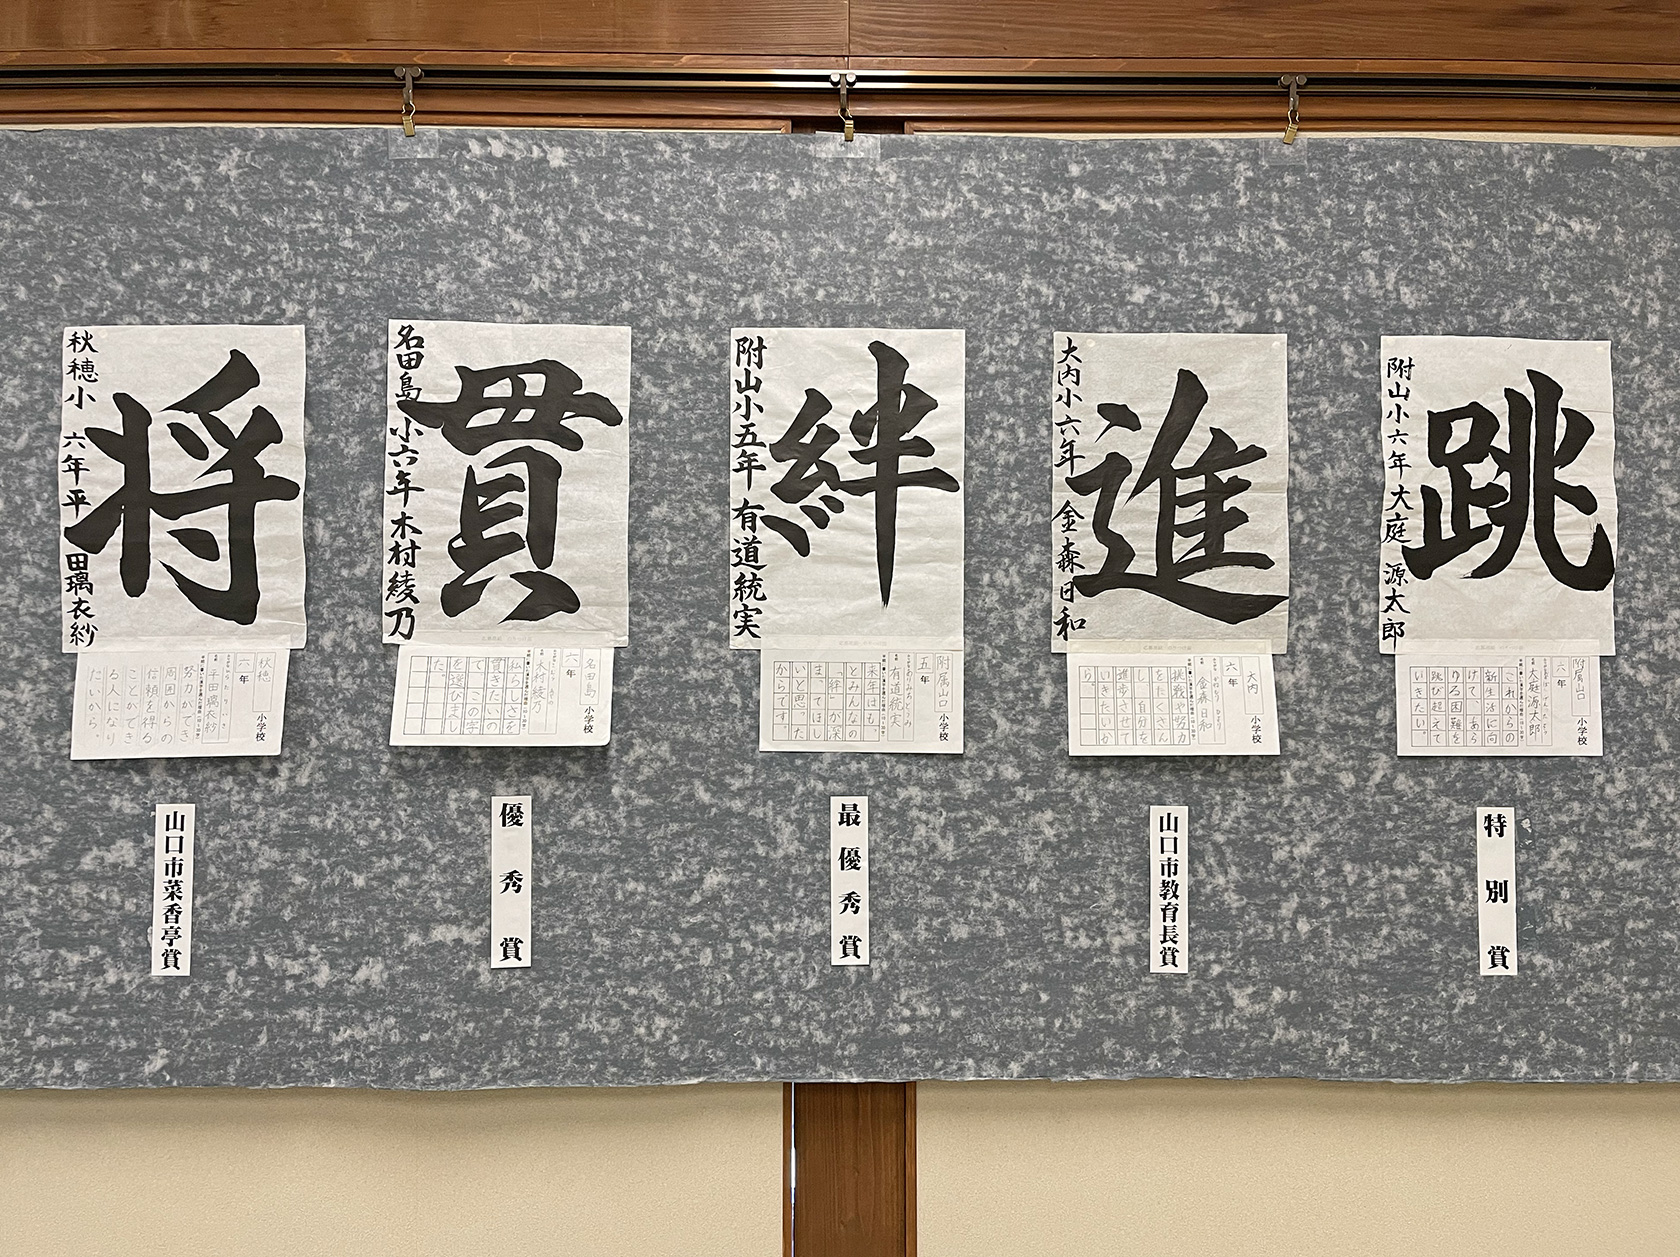 跳
附山小六年 大庭 源太郎
附属山口 小学校
六年
大庭源太郎
これからの
新生活に向
けて、あら
ゆる困難を
跳び越えて
いきたい。
特別賞
進
大内小六年 金森日和
大内 小学校
六年
金森日和
挑戦や努力
をたくさん
し、自分を
進歩させて
いきたいか
ら。
山口市教育長賞
絆
附山小五年 有道統実
附属山口 小学校
五年
有道統実
来年はも、
とみんなの
「絆」が深
まってほし
いと思った
からです。
最優秀賞
貫
名田島小六年 木村綾乃
名田島 小学校
六年
木村綾乃
私らしさを
貫きたいの
で、この字
を選びまし
た。
優秀賞
将
秋穂小 六年 平田璃衣紗
秋穂 小学校
六年
平田璃衣紗
努力ができ
周囲からの
信頼を得る
ことができ
る人になり
たいから。
山口市菜香亭賞